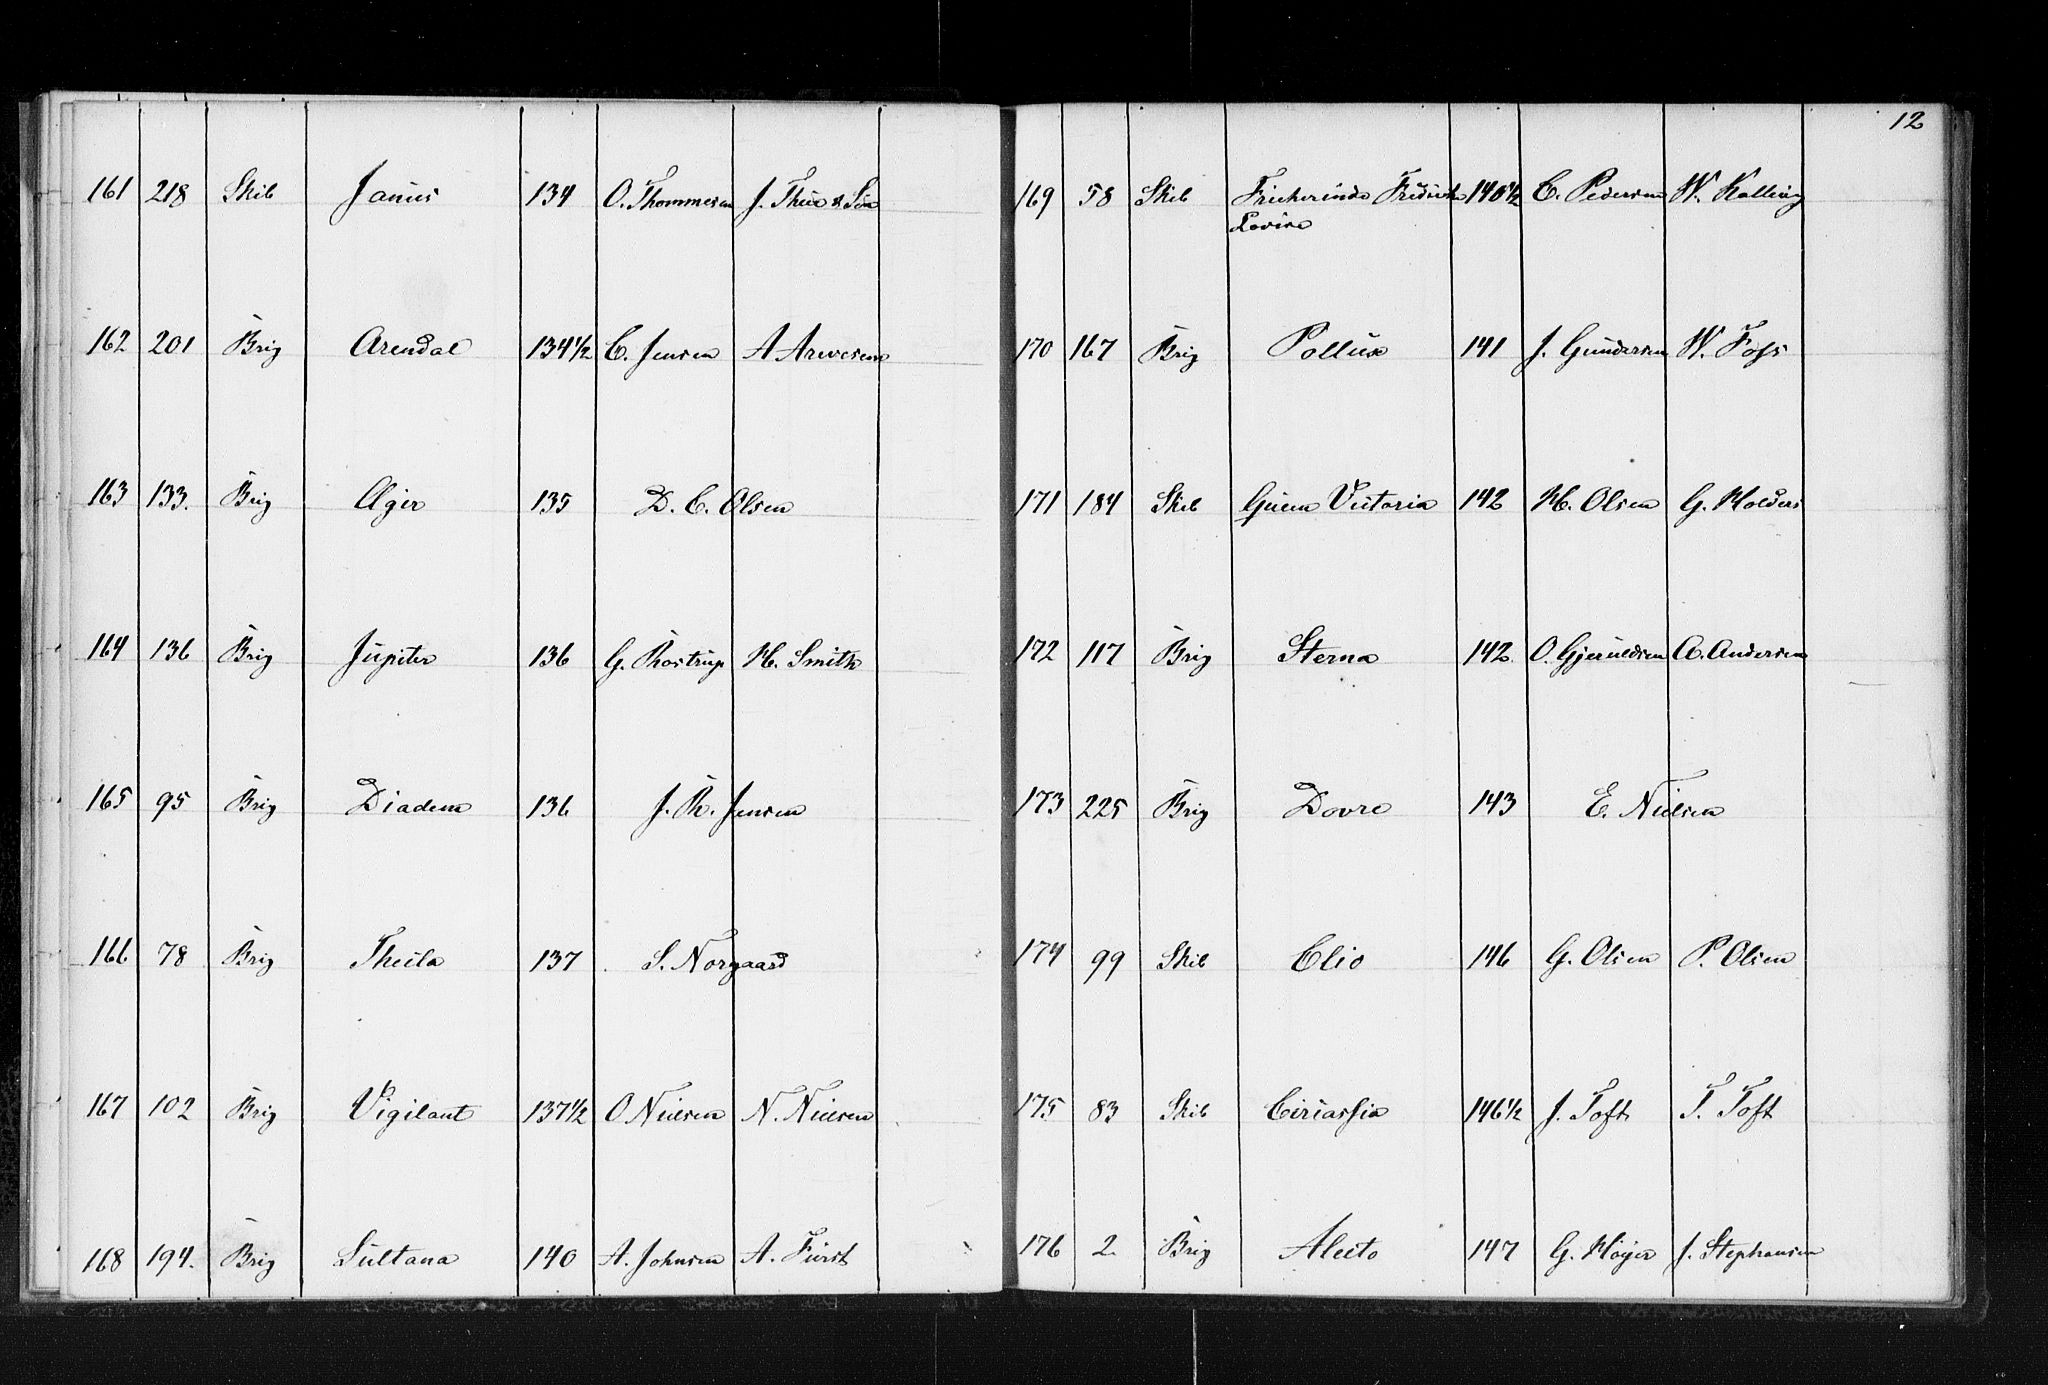 161 218 Skib Janus 134 O. Thommesen J. Thüe & Søn
162 201 Brig Arendal 134½ C. Jensen A Arvesen
163 133. Brig Ajer 135 D. C. Olsen
164 136 Brig Jupiter 136 G. Rostrup M. Smith
165 95 Brig Diadem 136 J. R. Jensen
166 78 Brig Theila 137 S. Norgaard
167 102 Brig Vigilant 137½ O Nielsen N. Nielsen
168 194. Brig Sultana 140 A. Johnsen A. Fürst
12
169 58 Skib Frederikke 140½ C. Pedersen W. Kallevig
Lovise
170 167 Brig Pollux 141 J. Gundersen W. Foss
171 184 Skib Queen Victoria 142 M. Olsen G. Molders
172 117 Brig Sterna 142 O. Gjeruldsen A. Andersen
173 225 Brig Dovre 143 E. Nielsen
174 99 Skib Clio 146 G. Olsen P. Olsen
175 83 Skib Circassia 146½ J. Toft T. Toft
176 2 Brig Alecto 147 G. Höyer J. Stephansen